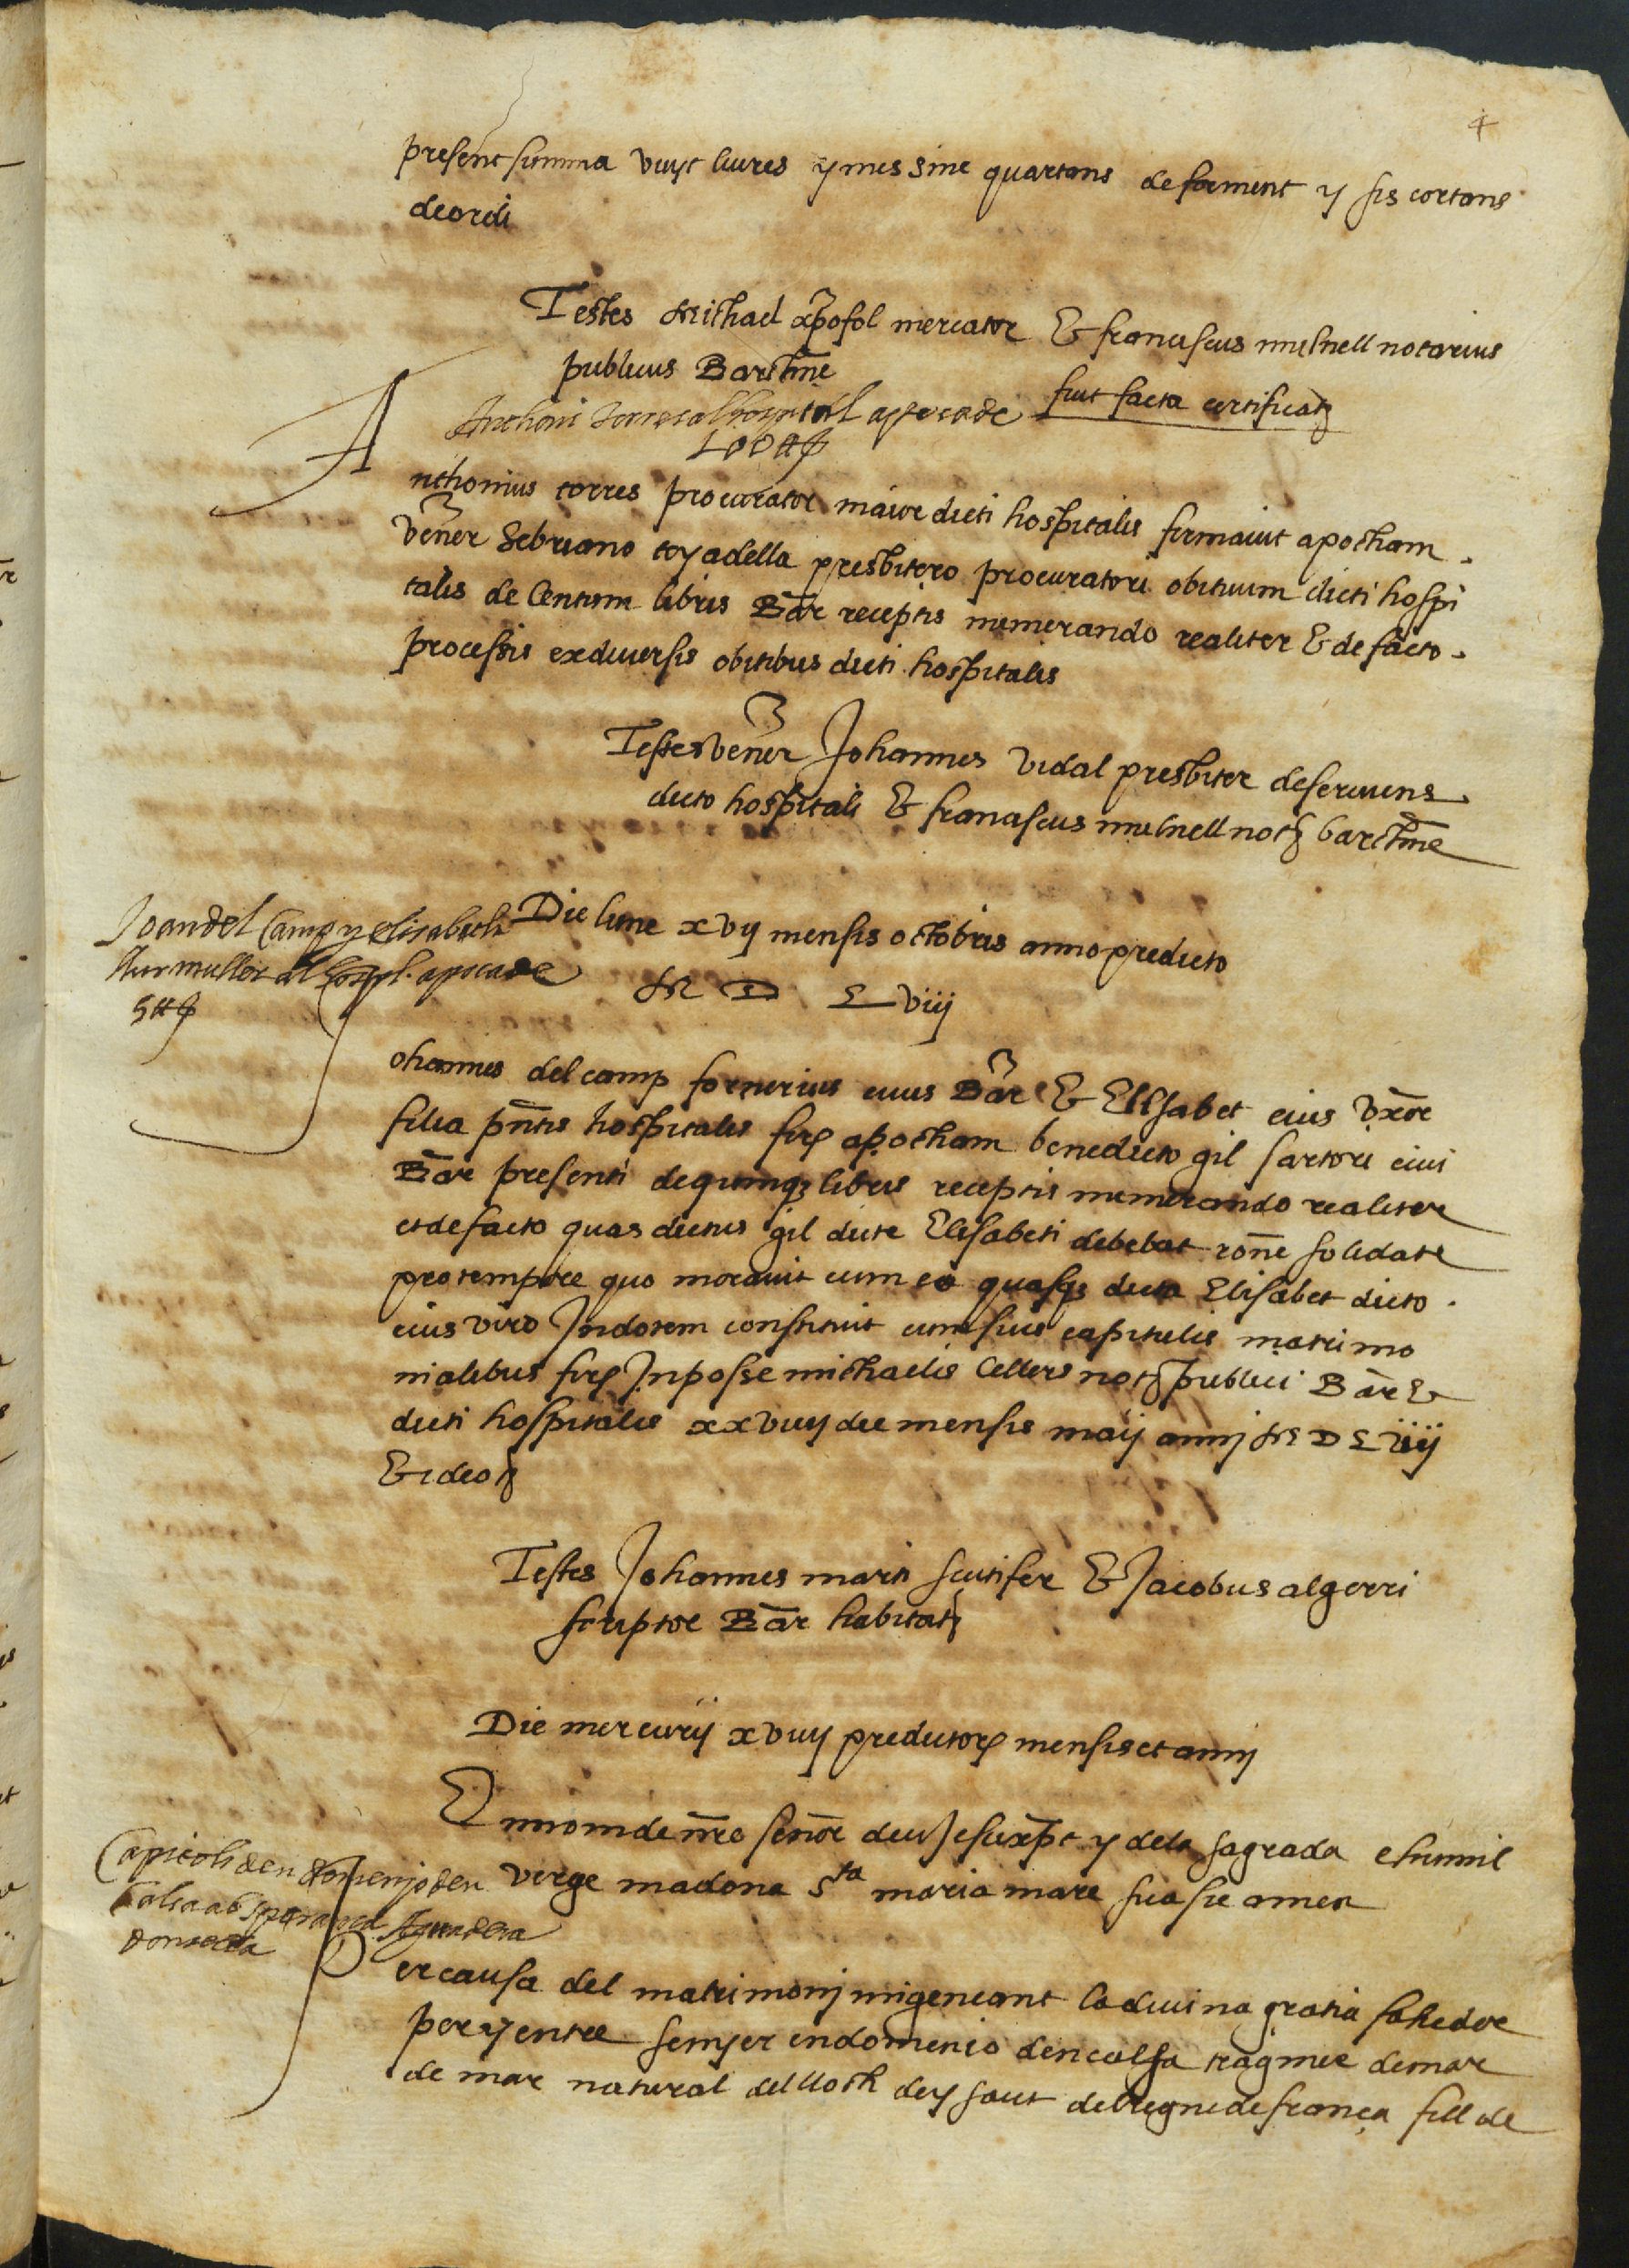 4
present summa vuyt liures y mes sinc quartans de forment y sis cortans
de ordi
Testes Michael xp̄ofol mercator & franciscus mulnell notarius
publicus Barchn̄e
Anthoni Torres al hospital apoca de fuit facta certificat
100 ₶
Anthonius torres procurator maior dicti hospitalis firmauit apocham
Vener̄ Sebriano toyadella presbitero procuratori obituum dicti hospi
talis de Centum libris Bar̄ receptis numerando realiter & de facto
processis ex diuersis obitibus dicti hospitalis
Testes Vener̄ Johannes Vidal presbiter deseruiens
dicto hospitali & franciscus mulnell not barchn̄e
Joan del Camp y elisabeth
sa muller al hospl. apoca de
5 ₶
Die lune xvij mensis octobris anno predicto
M D L viij
Johannes del camp fornerius ciuis Bar̄ & Elisabet eius Vxōr
filia pn̄tis hospitalis fir apocham benedicto gil sartori ciui
Bar̄ presenti de quinq libris receptis numerando realiter
et de facto quas dictus gil dicte Elisabeti debebat ron̄e solidate
pro tempore quo morauit cum eo quasq dicta Elisabet dicto
eius viro Jn dotem constituit cum suis capitulis matrimo
nialibus fir Jn posse michaelis Cellers not publici Bar̄ &
dicti hospitalis xxviiij die mensis maij annj M D L viij
& ideo
Testes Johannes marti scutifer & Jacobus algerri
scriptor Bar̄ habitat
Die mercurij xviiij predictor mensis et annj
En nom de nr̄e senōr deu Jesuxp̄t y dela sagrada e humil
verge madona Sta maria mare sua sie amen
Capitols den domenjo den
calsa ab speransa
donsella
Per causa del matrimonj migensant la diuina gratia fahedor
per y entre semyer en domenio den calsa traginer de mar
de mar natural del lloch deysaut del regne de frança fill de